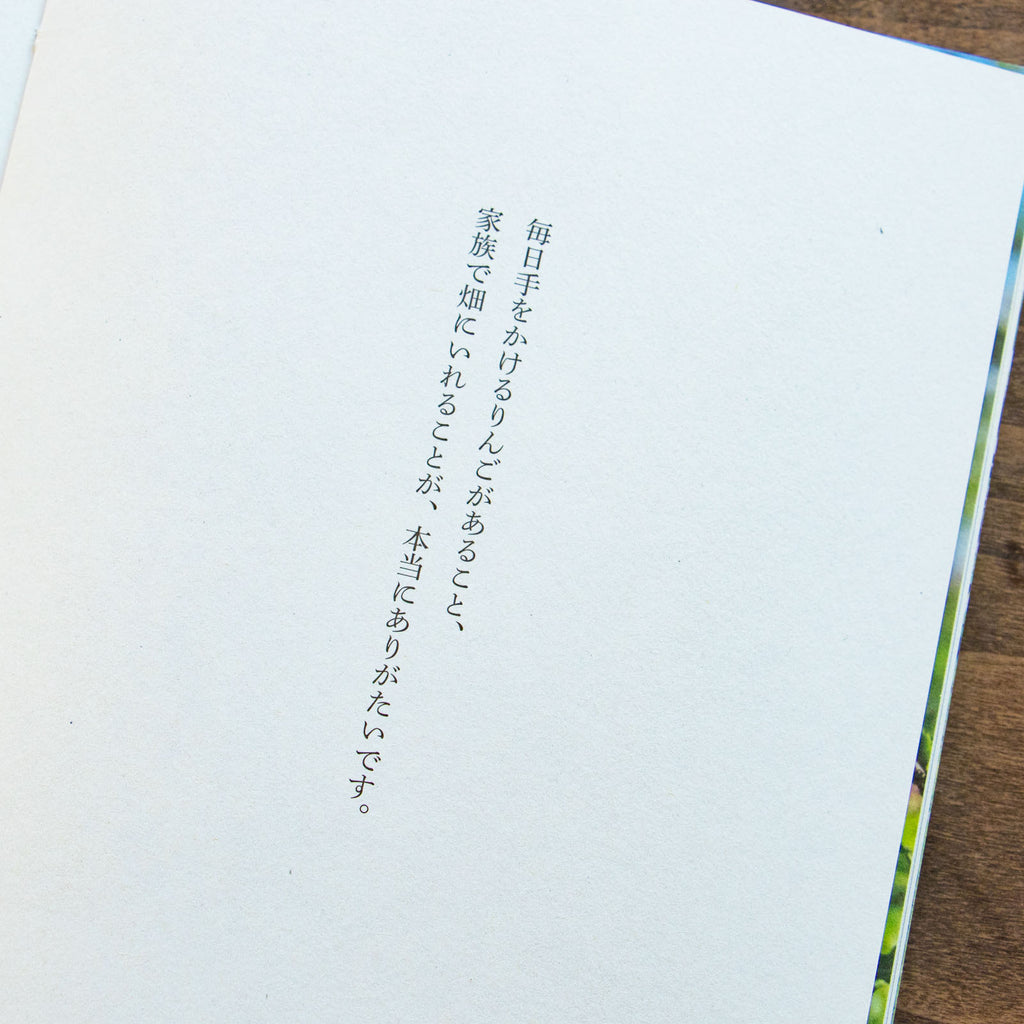 毎日手をかけるりんごがあること、
家族で畑にいれることが、本当にありがたいです。